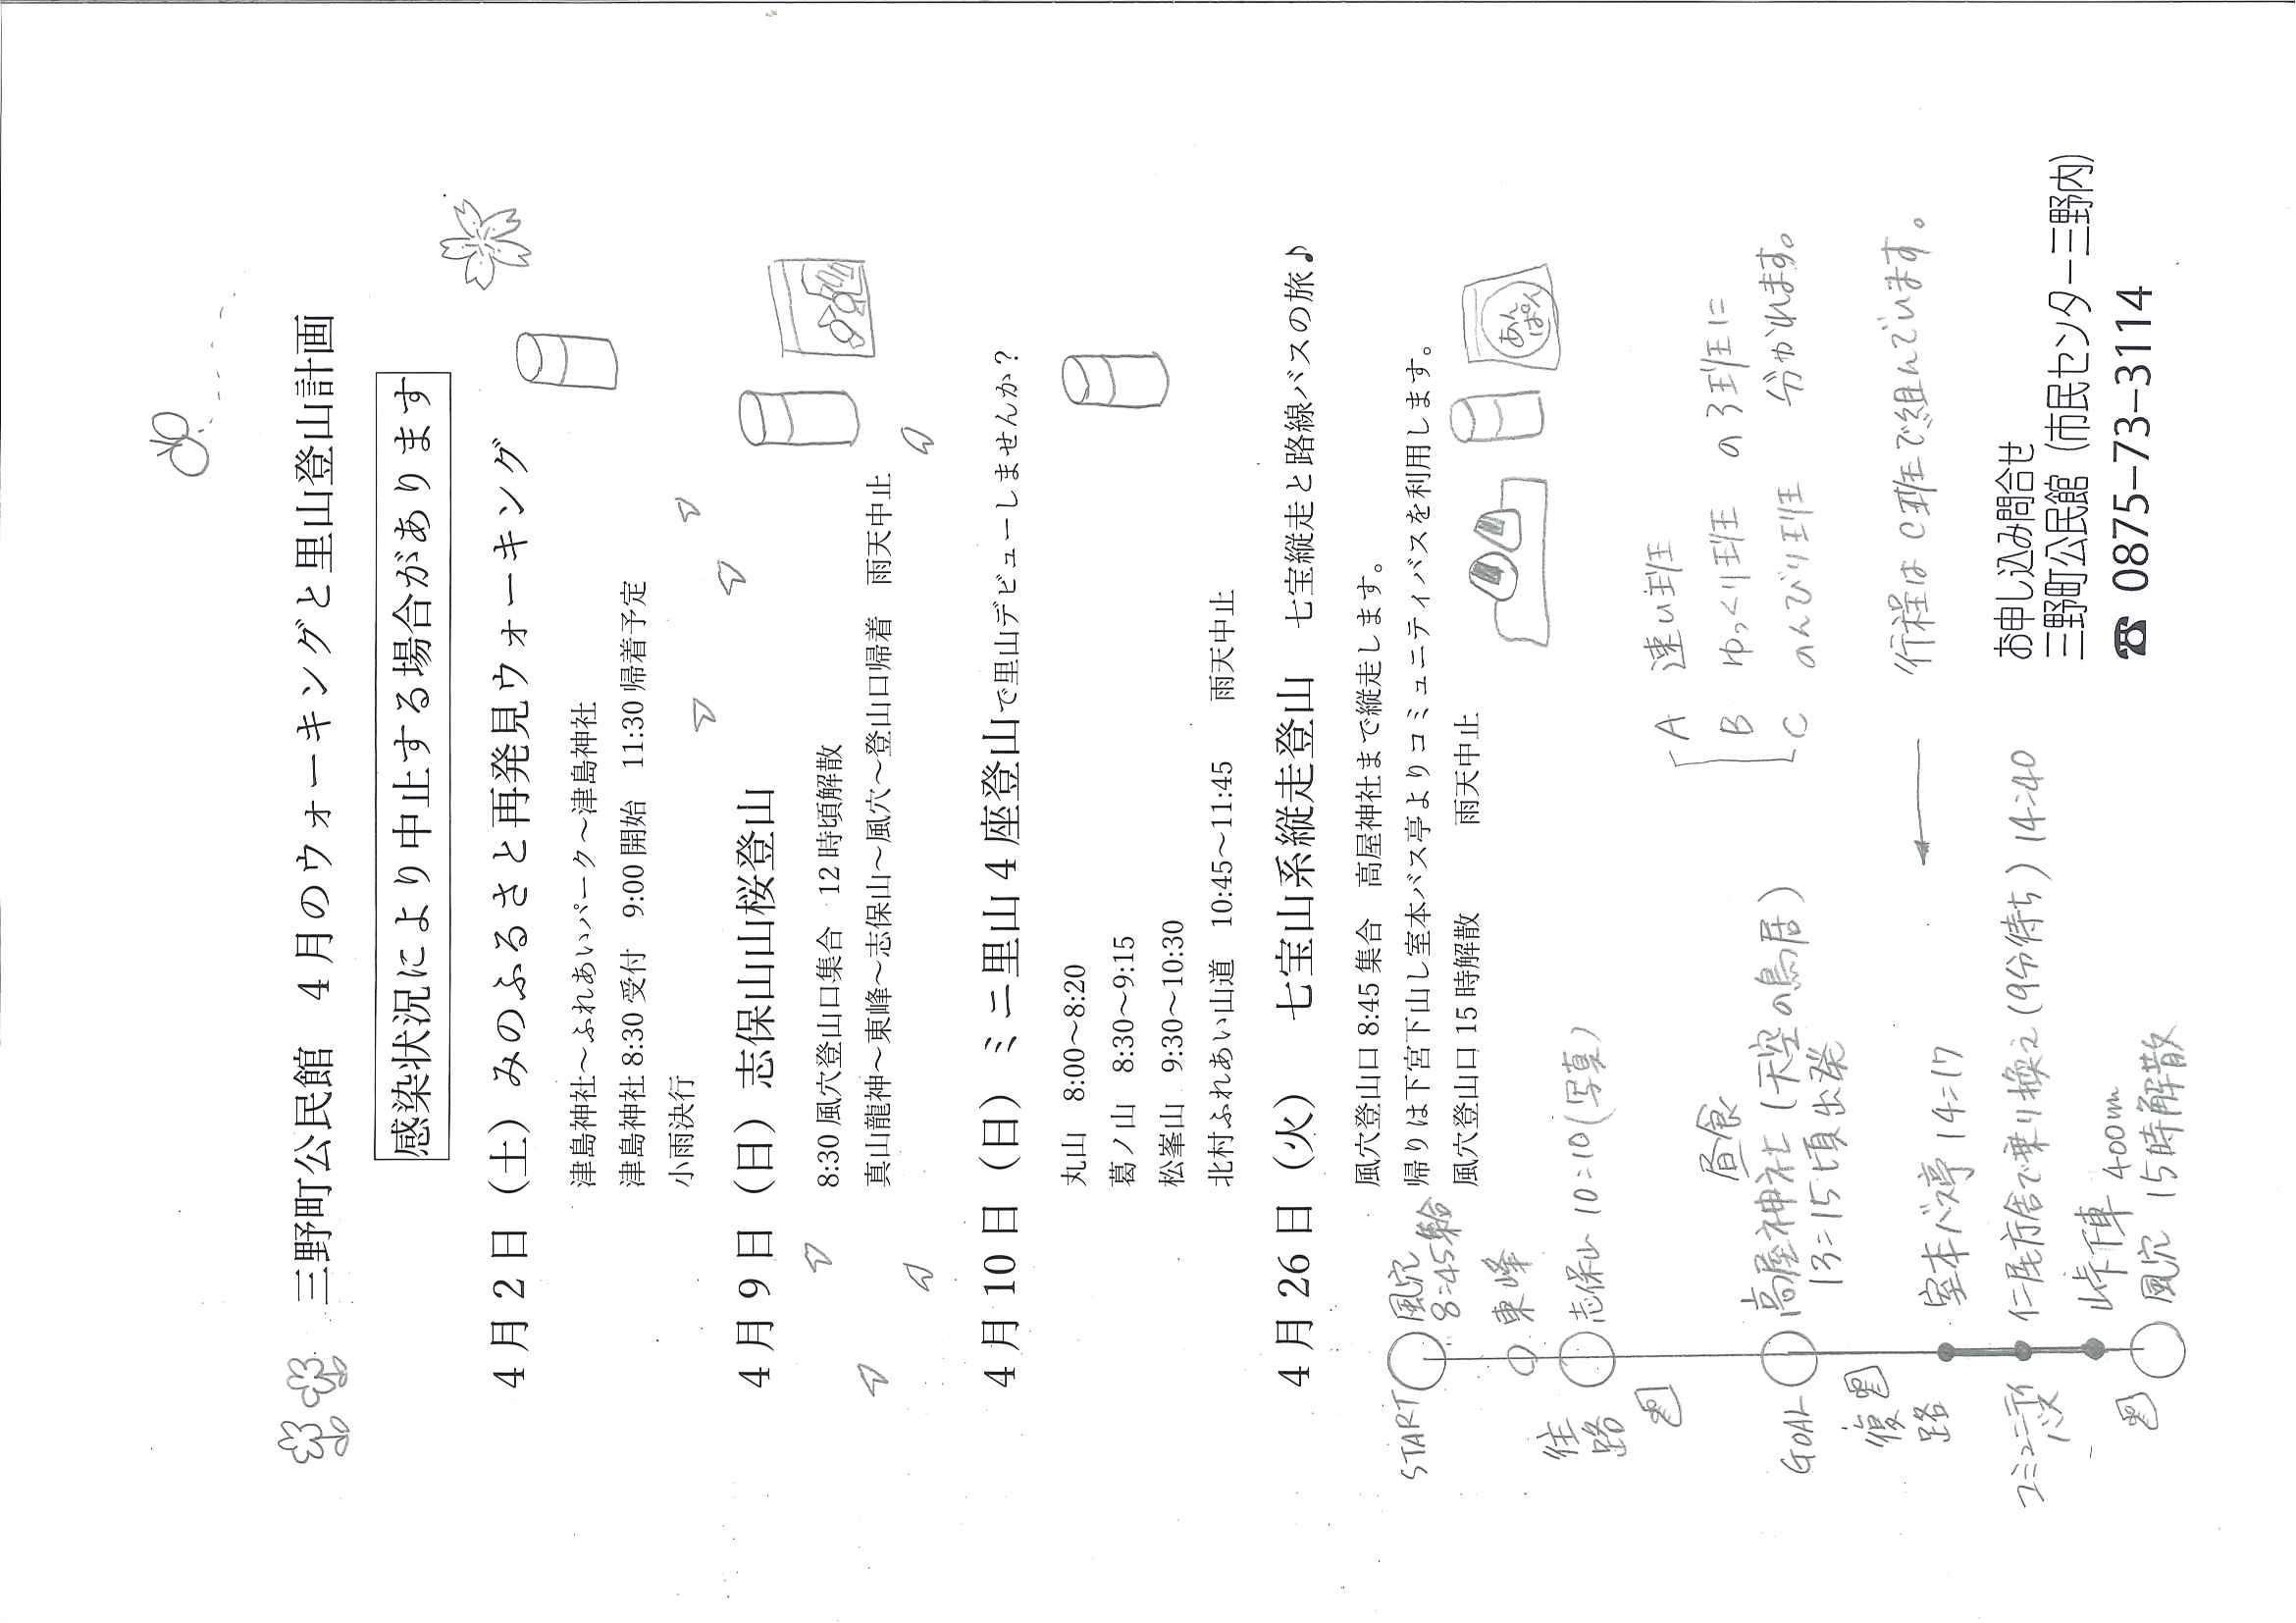 三野町公民館　4月のウォーキングと里山登山計画
感染状況により中止する場合があります
4月2日（土）みのふるさと再発見ウォーキング
津島神社～ふれあいパーク～津島神社
津島神社 8:30 受付　9:00 開始　11:30 帰着予定
小雨決行
4月9日（日）志保山山桜登山
8:30 風穴登山口集合　12時頃解散
真山龍神～東峰～志保山～風穴～登山口帰着　雨天中止
4月10日（日）ミニ里山4座登山で里山デビューしませんか？
丸山　8:00～8:20
葛ノ山　8:30～9:15
松峯山　9:30～10:30
北村ふれあい山道　10:45～11:45　雨天中止
4月26日（火）　七宝山系縦走登山　七宝縦走と路線バスの旅♪
風穴登山口 8:45 集合　高屋神社まで縦走します。
帰りは下宮下山し室本バス亭よりコミュニティバスを利用します。
風穴登山口 15時解散　雨天中止
あん
ぱん
START
風穴
8:45集合
東峰
往
路
志保山 10:10(写真)
A　速い班
B　ゆっくり班　の3班に
C　のんびり班　分かれます。
昼食
GOAL
高屋神社（天空の鳥居）
13:15頃出発
復
路
行程はC班で組んでいます。
室本バス亭 14:17
コミュニティ
バス
仁尾庁舎で乗り換え(9分待ち) 14:40
峠下車 400m
風穴 15時解散
お申し込み問合せ
三野町公民館（市民センター三野内）
☎ 0875-73-3114